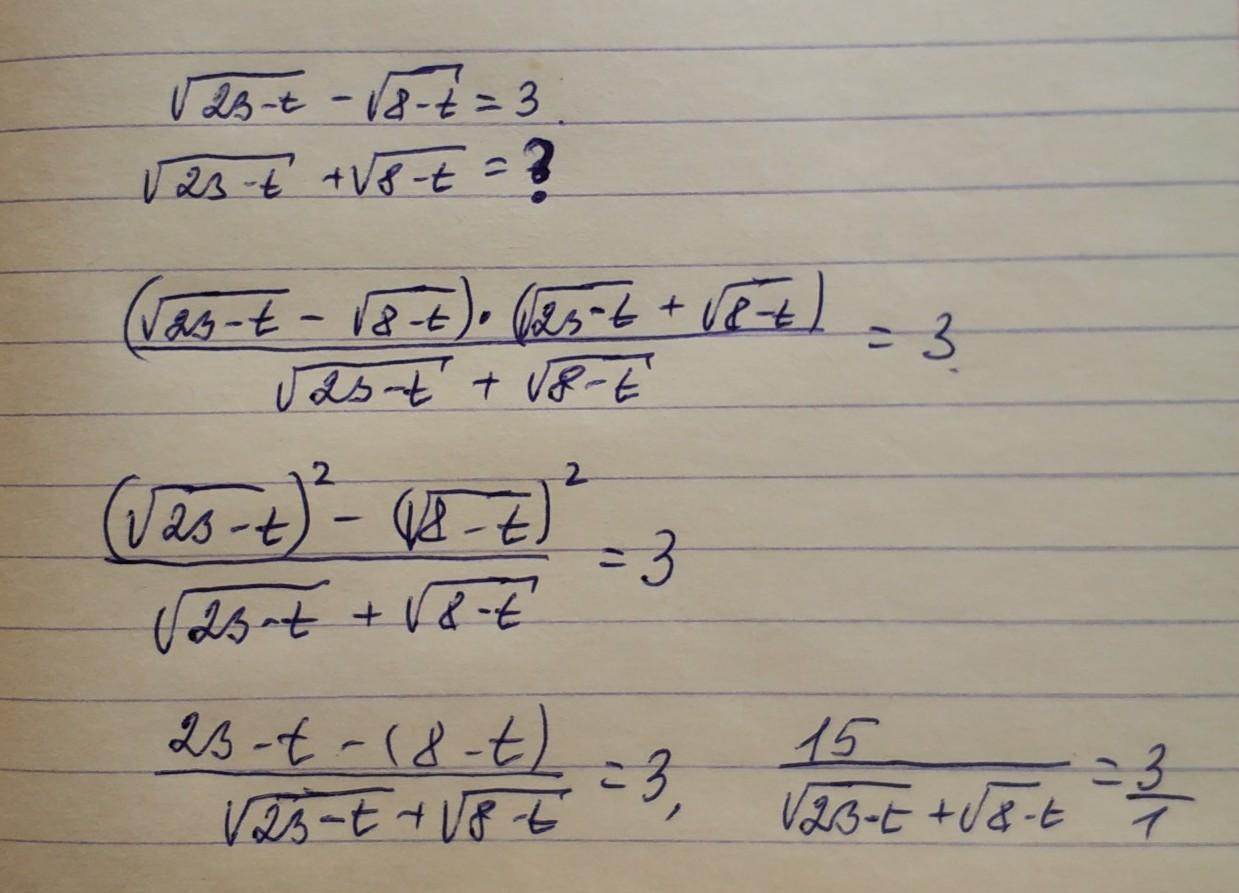 √(23-t) - √(8-t) = 3.
√(23-t) + √(8-t) = ?
((√(23-t) - √(8-t)) · (√(23-t) + √(8-t))) / (√(23-t) + √(8-t)) = 3.
((√(23-t))² - (√(8-t))²) / (√(23-t) + √(8-t)) = 3
(23-t-(8-t)) / (√(23-t) + √(8-t)) = 3, 15 / (√(23-t) + √(8-t)) = 3/1